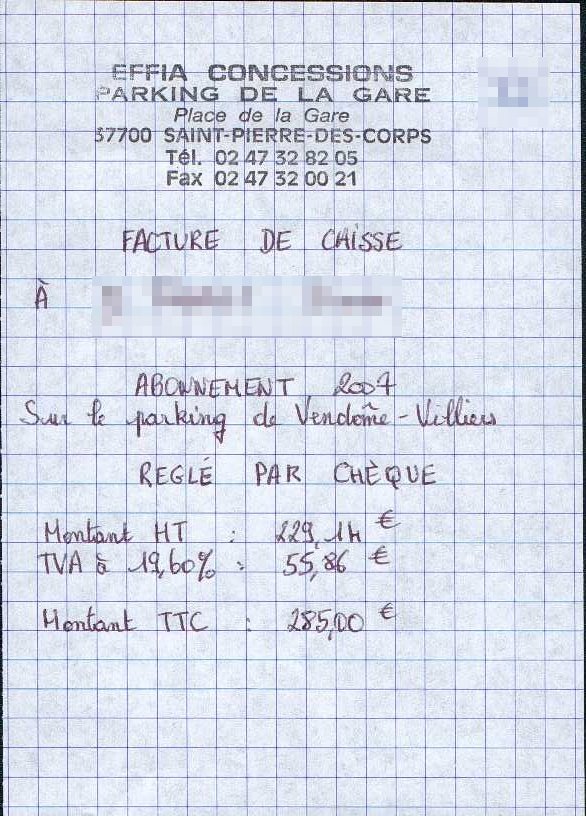 EFFIA CONCESSIONS
PARKING DE LA GARE
Place de la Gare
37700 SAINT-PIERRE-DES-CORPS
Tél. 02 47 32 82 05
Fax 02 47 32 00 21
FACTURE DE CAISSE
À
ABONNEMENT 2007
Sur le parking de Vendôme - Villiers
REGLÉ PAR CHÈQUE
Montant HT : 229,14 €
TVA à 19,60% : 55,86 €
Montant TTC : 285,00 €